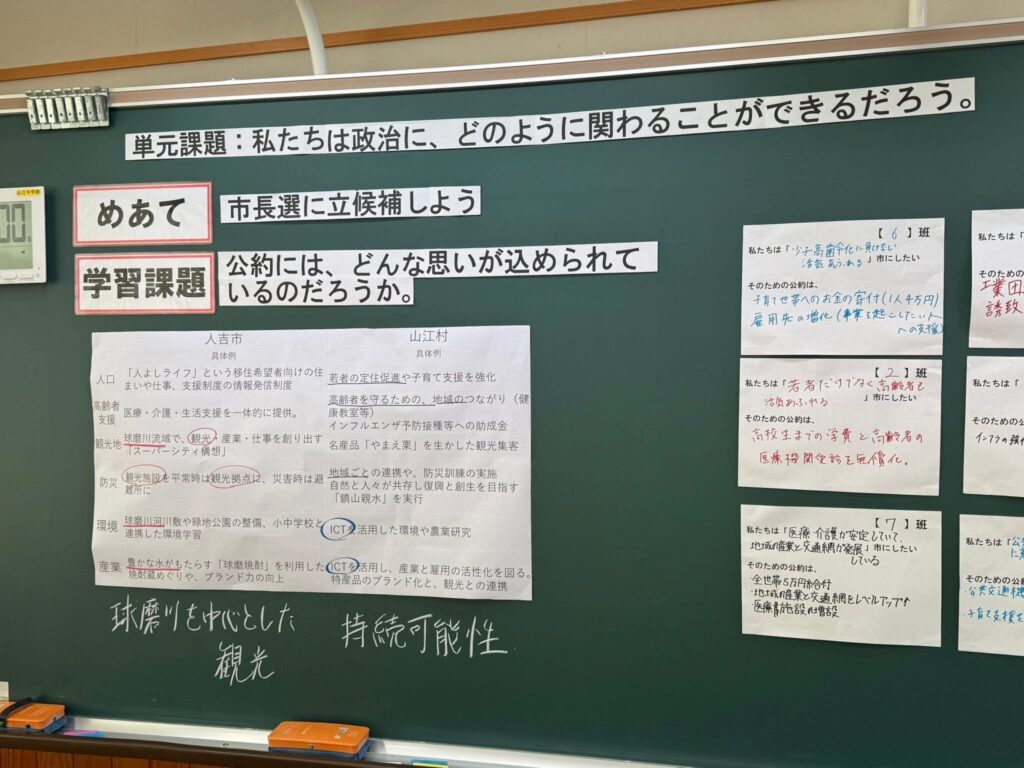 単元課題：私たちは政治に、どのように関わることができるだろう。
山江中学校
00
めあて
市長選に立候補しよう
学習課題
公約には、どんな思いが込められて
いるのだろうか。
人吉市
山江村
具体例
具体例
人口
「人よしライフ」という移住希望者向けの住
まいや仕事、支援制度の情報発信制度
若者の定住促進や子育て支援を強化
高齢者
支援
医療・介護・生活支援を一体的に提供。
高齢者を守るための、地域のつながり（健
康教室等）
インフルエンザ予防接種等への助成金
観光地
球磨川流域で、観光・産業・仕事を創り出す
「スーパーシティ構想」
名産品「やまえ栗」を生かした観光集客
防災
観光施設を平常時は観光拠点に、災害時は避
難所に
地域ごとの連携や、防災訓練の実施
自然と人々が共存し復興と創生を目指す
「鎮山親水」を実行
環境
球磨川河川敷や緑地公園の整備、小中学校と
連携した環境学習
ICTを活用した環境や農業研究
産業
豊かな水がもたらす「球磨焼酎」を利用した
焼酎蔵めぐりや、ブランド力の向上
ICTを活用し、産業と雇用の活性化を図る。
特産品のブランド化と、観光との連携
球磨川を中心とした
観光
持続可能性
【6】班
私たちは「少子高齢化に負けない
活気あふれる」市にしたい
そのための公約は、
・子育て世帯へのお金の寄付(1人4万円)
・雇用先の増化(事業を起こしたい人
への支援)
【2】班
私たちは「若者だけでなく高齢者も
活気あふれる」市にしたい
そのための公約は、
高校生までの学費と高齢者の
医療機関受診を無償化。
【7】班
私たちは「医療・介護が安定していて、
地域の産業と交通網が発展」市にしたい
している
そのための公約は、
・全世帯5万円給付
・地域の産業と交通網をレベルアップ
・医療施設の増設
私たちは「
そのための
工業団
誘致
私たちは「
そのための
インフラの強
私たちは「公
に
そのための
・公共交通機
・子育て支援を